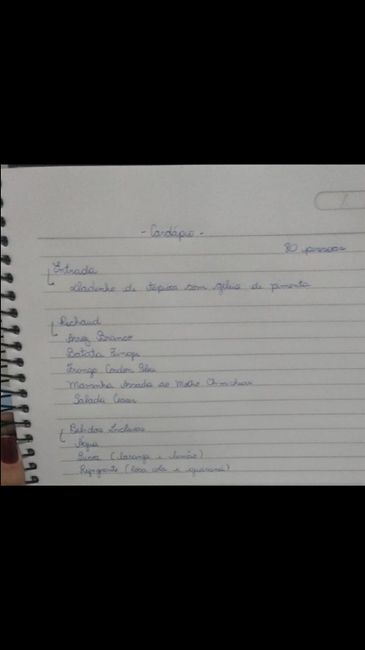 - Cardápio -
80 pessoas
Entrada
Dadinho de tapioca com geleia de pimenta
Rechaud
Arroz Branco
Batata
Frango Cordon Bleu
Maminha Assada ao Molho Chimichurri
Salada Caesar
Bebidas Inclusas
Água
Sucos (laranja e limão)
Refrigerante (coca cola e guaraná)